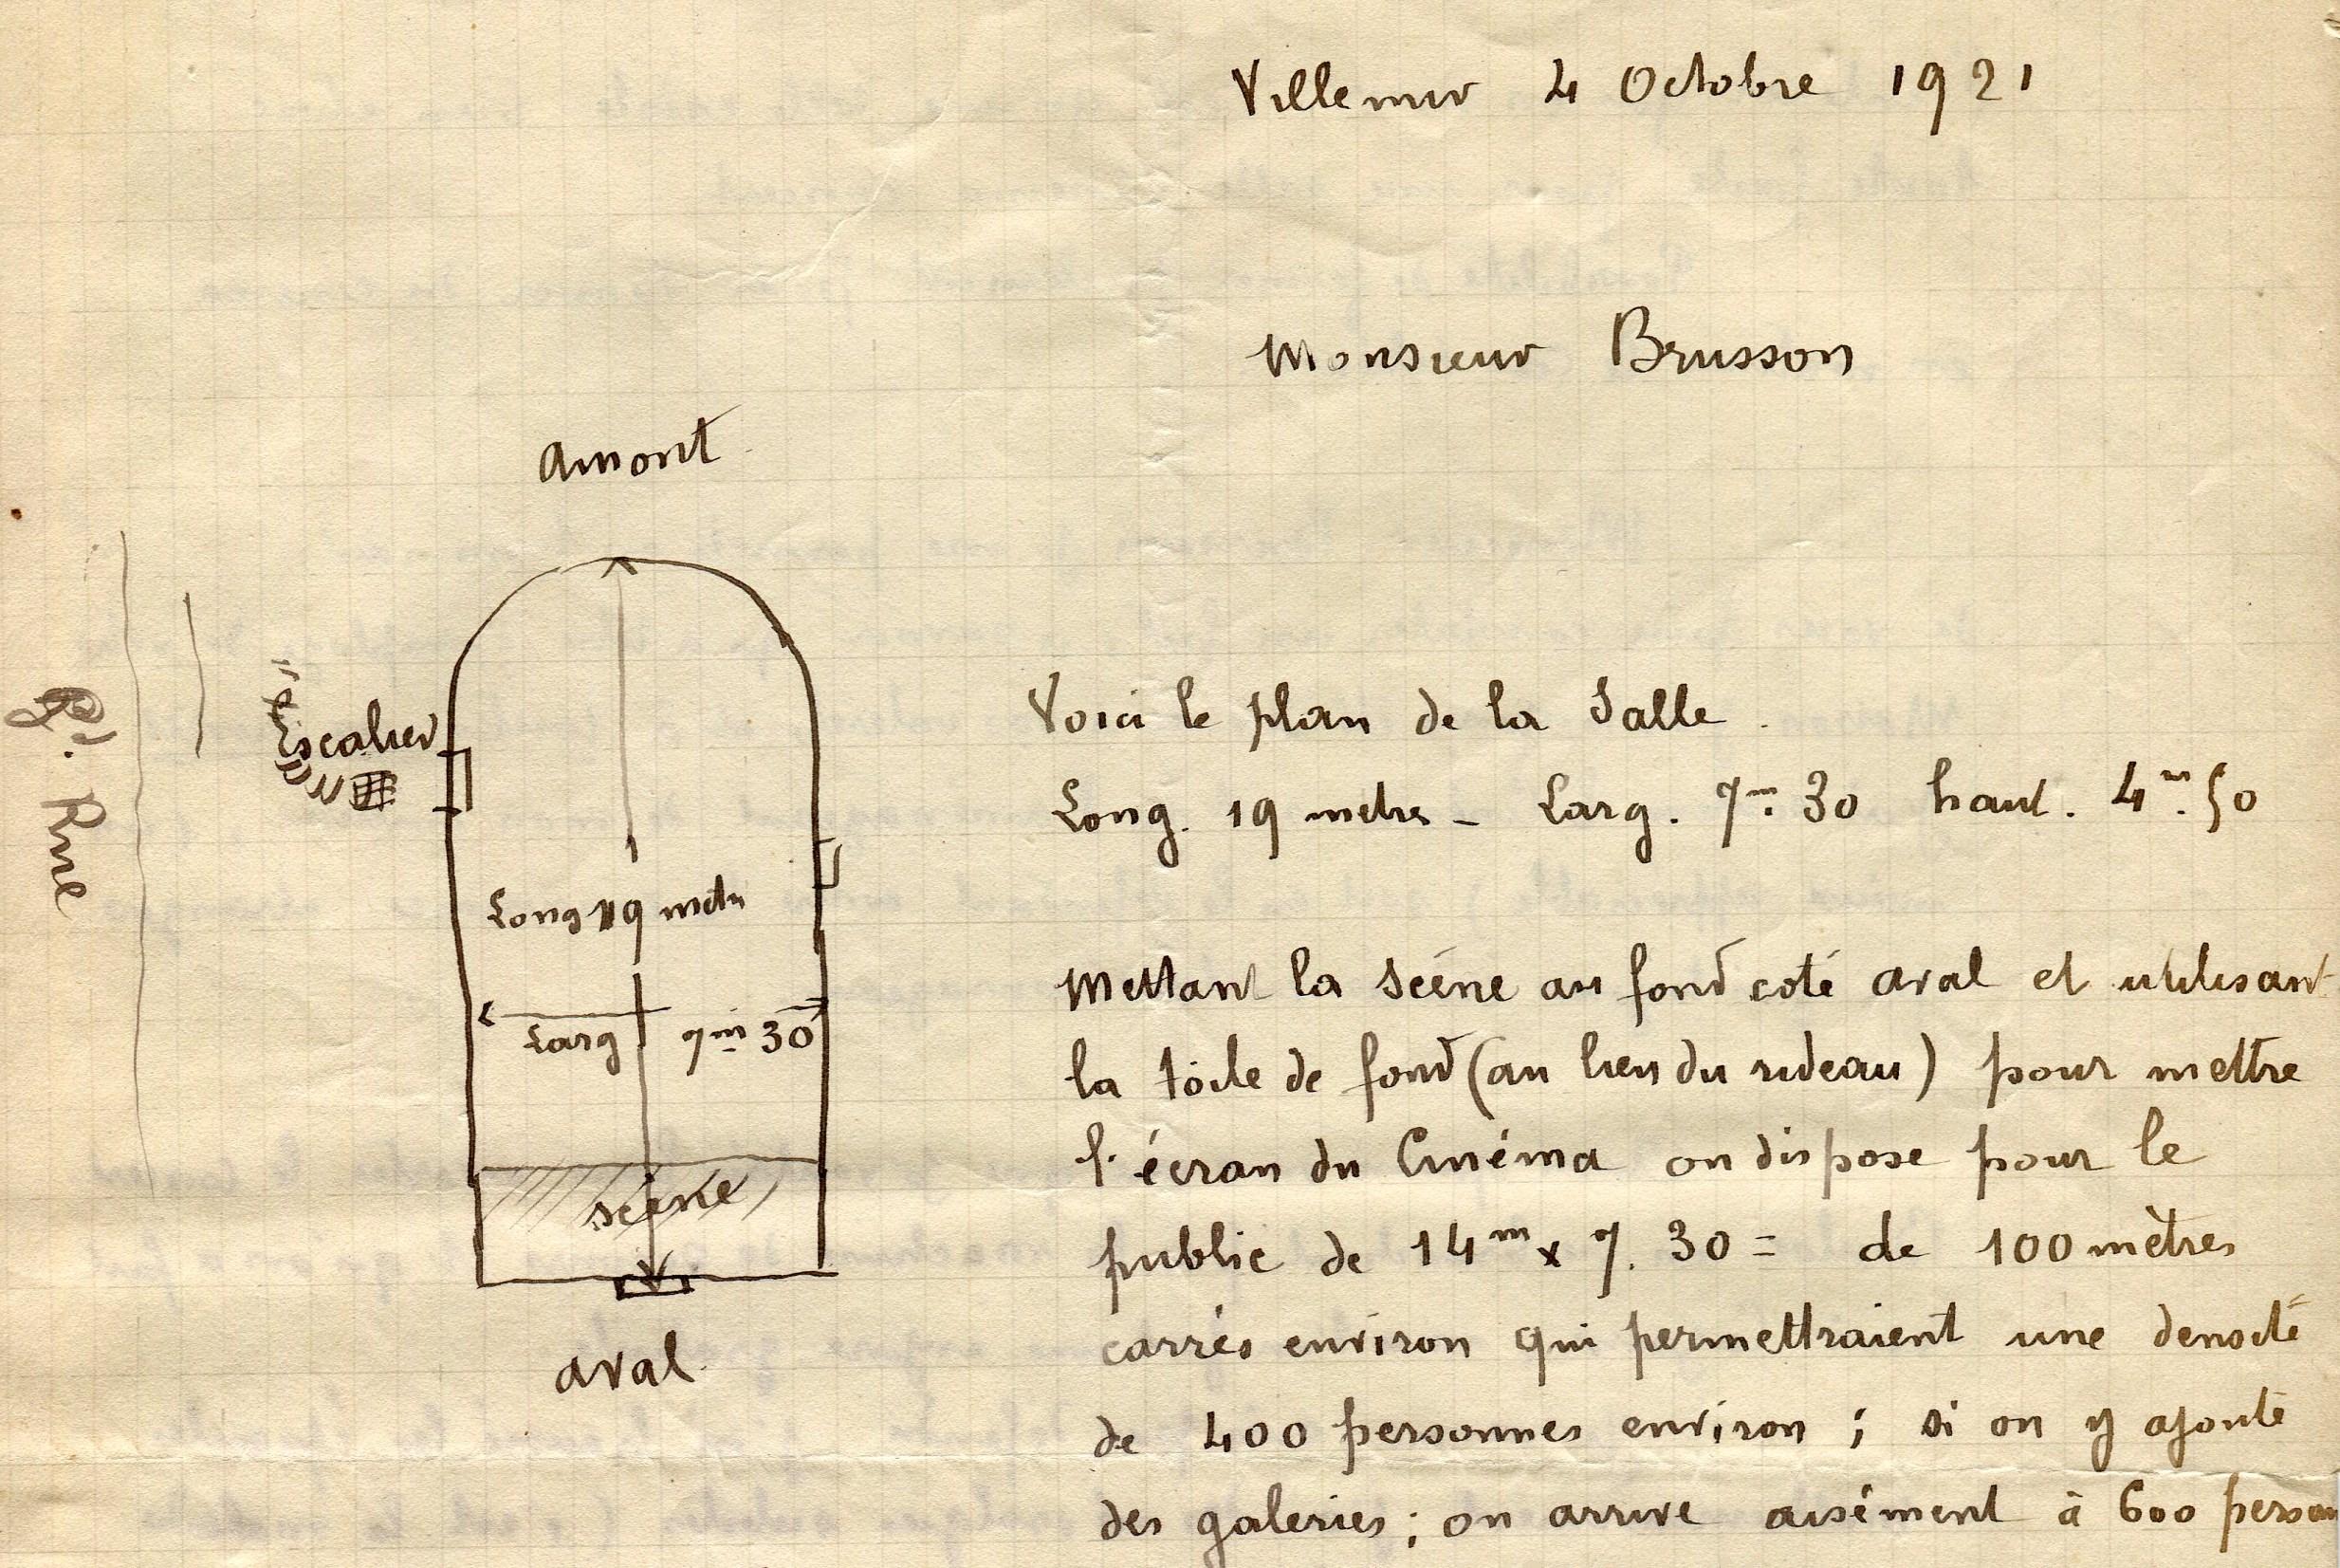 Villemur 4 Octobre 1921
Monsieur Brusson
amont
Gd. Rue
Escalier
Long 19 metres
Larg 7m 30
scène
aval
Voici le plan de la Salle.
Long. 19 metres - Larg. 7m. 30 haut. 4m. 50
Mettant la scène au fond coté aval et utilisant
la toile de fond (au lieu du rideau) pour mettre
l'écran du Cinéma on dispose pour le
public de 14m x 7. 30 = de 100 mètres
carrés environ qui permettraient une densité
de 400 personnes environ ; si on y ajoute
des galeries ; on arrive aisément à 600 person